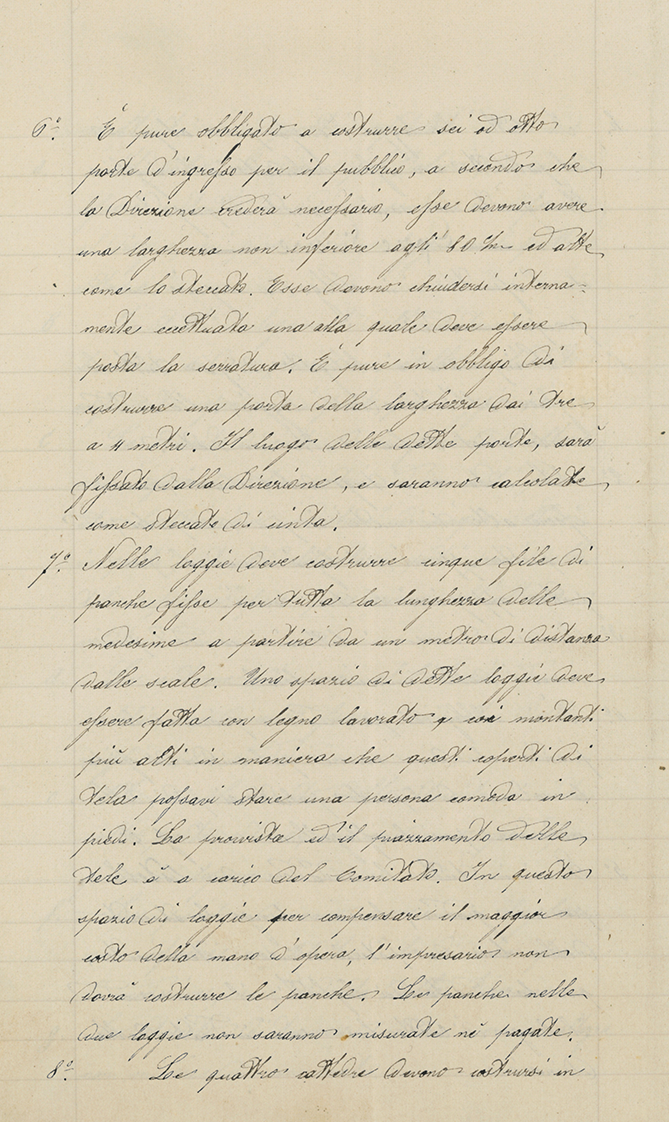 6º. È pure obbligato a costrurre sei od otto
porte d'ingresso per il pubblico, a secondo che
la Direzione crederà necessario, esse devono avere
una larghezza non inferiore agli 80 %m ed alte
come lo steccato. Esse devono chiudersi interna=
mente eccettuata una alla quale deve essere
posta la serratura. È pure in obbligo di
costrurre una porta della larghezza dai tre
a 4 metri. Il luogo delle dette porte, sarà
fissato dalla Direzione, e saranno calcolate
come steccate di cinta.
7º. Nelle loggie deve costrurre cinque file di
panche fisse per tutta la lunghezza delle
medesime a partire da un metro di distanza
dalle scale. Uno spazio di dette loggie deve
essere fatta con legno lavorato e coi montanti
più alti in maniera che questi coperti di
tela possavi stare una persona comoda in
piedi. La provista ed il piazzamento delle
tele è a carico del Comitato. In questo
spazio di loggie per compensare il maggior
costo della mano d'opera, l'impresario non
dovrà costrurre le panche. Le panche nelle
due loggie non saranno misurate nè pagate.
8º. Le quattro cattedre devono costrursi in